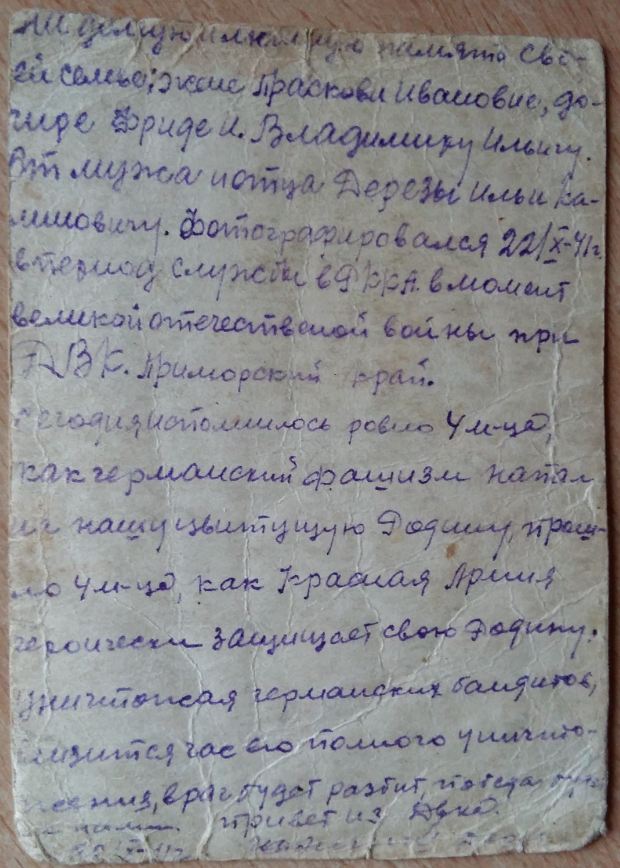 память сво-
ей семье; жене Праскови Ивановне, до-
чиде Фриде и. Владимиру Ильичу.
От мужа и отца Дерезы Ильи Ка-
линовичу. Фотографировался 22/X-41г.
в период службы в РККА. в момент
великой отечественой войны при
ДВК. Приморский край.
Сегодня исполнилось ровно 4 м-ца,
как германский фашизм напал
на нашу цвитущую Родину, прош-
ло 4 м-ца, как Красная Армия
героически защищает свою Родину.
уничтожая германских бандитов,
близится час его полного уничто-
жения, враг будет разбит, победа будет
за нами. привет из Двка.
22/X-41г.